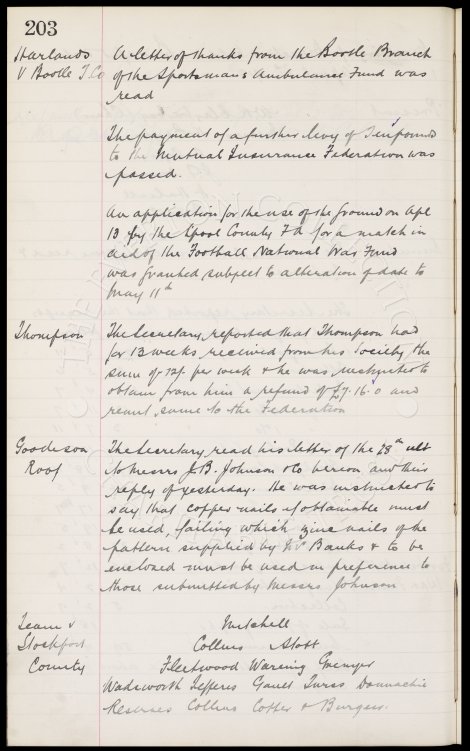 203
Harlands A letter of thanks from the Bootle Branch
V Bootle J. Co of the Sportsmans Ambulance Fund was
read
The payment of a further levy of Ten pounds
to the Mutual Insurance Federation was
passed.
An application for the use of the ground on Apl
13 by the Lpool County F A for a match in
aid of the Football National War Fund
was granted subject to alteration of date to
May 11th
Thompson The Secretary reported that Thompson had
for 13 weeks received from his Society the
sum of 12/- per week & he was instructed to
obtain from him a refund of £7.16.0 and
remit same to the Federation
Goodison The Secretary read his letter of the 28th ult
Roof to Messrs J.B. Johnson & Co and their
reply of yesterday. He was instructed to
say that copper nails if obtainable must
be used, failing which zinc nails of the
pattern supplied by Mr Banks & to be
enclosed must be used in preference to
those submitted by Messrs Johnson
Team v Mitchell
Stockport Collins Stott
County Fleetwood Wareing Grenyer
Wadsworth Jefferis Gault Donnachie
Reserves Collins Copper & Burgess.